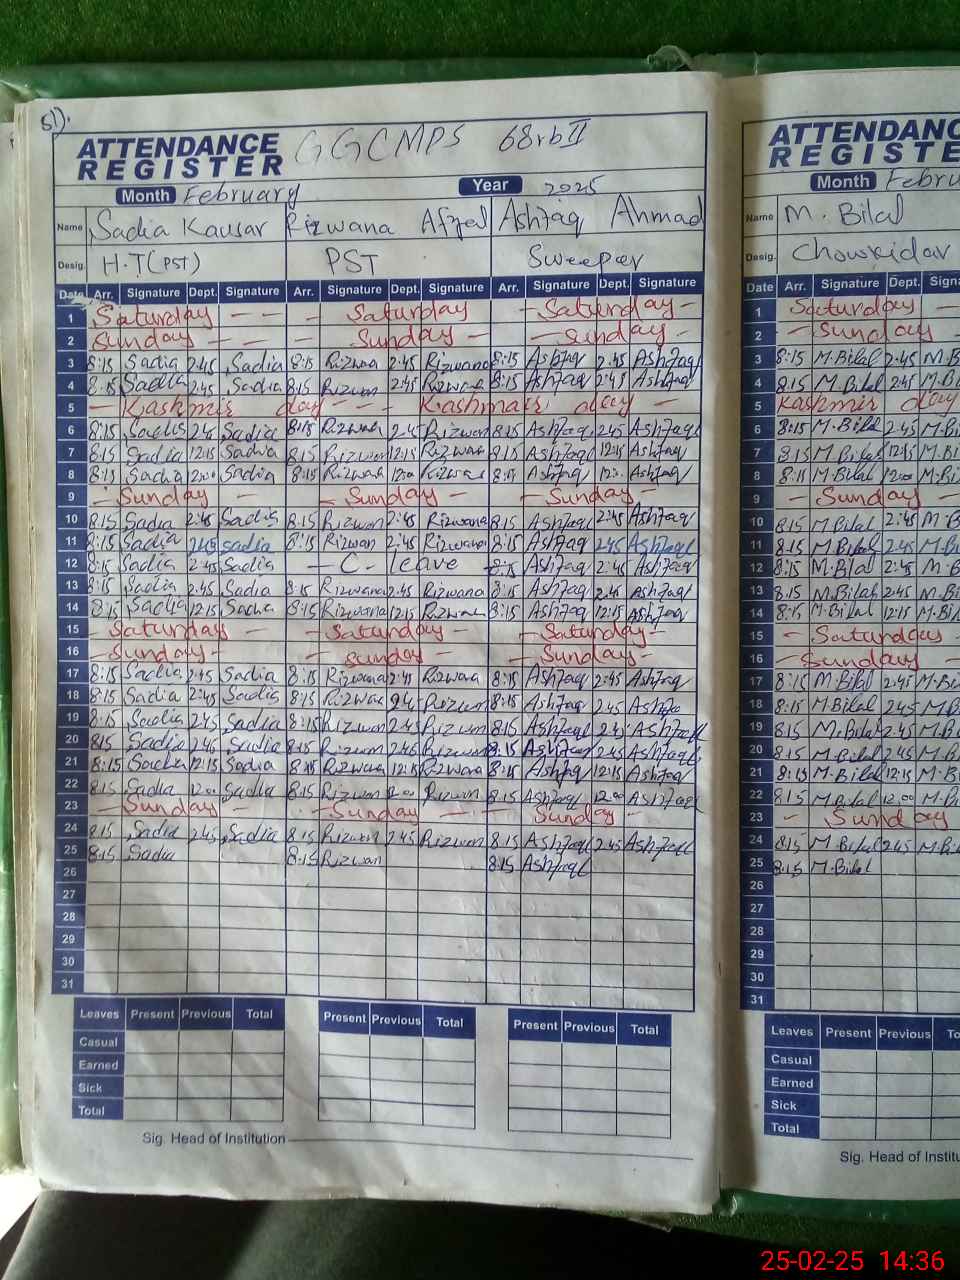 51).
ATTENDANCE REGISTER GGCMPS 68rb II
Month February Year 2025
Name Sadia Kausar Rizwana Afzal Ashfaq Ahmad
Desig. H.T(PST) PST Sweeper
Date Arr. Signature Dept. Signature Arr. Signature Dept. Signature Arr. Signature Dept. Signature
1 Saturday - - - Saturday - Saturday -
2 Sunday - - - Sunday - - Sunday -
3 8:15 Sadia 2:45 Sadia 8:15 Rizwan 2:45 Rizwana 8:15 Ashfaq 2:45 Ashfaq
4 8:15 Sadia 2:45 Sadia 8:15 Rizwan 2:45 Rizwana 8:15 Ashfaq 2:45 Ashfaq
5 - Kashmir day - - - Kashmair day -
6 8:15 Sadia 2:45 Sadia 8:15 Rizwana 2:45 Rizwan 8:15 Ashfaq 2:45 Ashfaq
7 8:15 Sadia 12:15 Sadia 8:15 Rizwan 12:15 Rizwana 8:15 Ashfaq 12:15 Ashfaq
8 8:15 Sadia 12:00 Sadia 8:15 Rizwan 12:00 Rizwana 8:15 Ashfaq 12:00 Ashfaq
9 - Sunday - - Sunday - - Sunday -
10 8:15 Sadia 2:45 Sadia 8:15 Rizwan 2:45 Rizwana 8:15 Ashfaq 2:45 Ashfaq
11 8:15 Sadia 2:45 Sadia 8:15 Rizwan 2:45 Rizwana 8:15 Ashfaq 2:45 Ashfaq
12 8:15 Sadia 2:45 Sadia - C- leave - 8:15 Ashfaq 2:45 Ashfaq
13 8:15 Sadia 2:45 Sadia 8:15 Rizwana 2:45 Rizwana 8:15 Ashfaq 2:45 Ashfaq
14 8:15 Sadia 12:15 Sadia 8:15 Rizwana 12:15 Rizwana 8:15 Ashfaq 12:15 Ashfaq
15 - Saturday - - Saturday - - Saturday -
16 - Sunday - - Sunday - - Sunday -
17 8:15 Sadia 2:45 Sadia 8:15 Rizwana 2:45 Rizwana 8:15 Ashfaq 2:45 Ashfaq
18 8:15 Sadia 2:45 Sadia 8:15 Rizwan 2:45 Rizwan 8:15 Ashfaq 2:45 Ashfaq
19 8:15 Sadia 2:45 Sadia 8:15 Rizwan 2:45 Rizwan 8:15 Ashfaq 2:45 Ashfaq
20 8:15 Sadia 2:45 Sadia 8:15 Rizwan 2:45 Rizwan 8:15 Ashfaq 2:45 Ashfaq
21 8:15 Sadia 12:15 Sadia 8:15 Rizwana 12:15 Rizwana 8:15 Ashfaq 12:15 Ashfaq
22 8:15 Sadia 12:00 Sadia 8:15 Rizwan 12:00 Rizwan 8:15 Ashfaq 12:00 Ashfaq
23 - Sunday - - Sunday - - Sunday -
24 8:15 Sadia 2:45 Sadia 8:15 Rizwan 2:45 Rizwan 8:15 Ashfaq 2:45 Ashfaq
25 8:15 Sadia 8:15 Rizwan 8:15 Ashfaq
26
27
28
29
30
31
Leaves Present Previous Total Present Previous Total Present Previous Total
Casual
Earned
Sick
Total
Sig. Head of Institution
ATTENDANC
REGISTE
Month Febru
Name M. Bilal
Desig. Chowkidar
Date Arr. Signature Dept. Signa
1 Saturday -
2 - Sunday -
3 8:15 M.Bilal 2:45 M.B
4 8:15 M.Bilal 2:45 M.B
5 Kashmir day
6 8:15 M.Bilal 2:45 M.B
7 8:15 M.Bilal 12:15 M.B
8 8:15 M.Bilal 12:00 M.Bi
9 - Sunday -
10 8:15 M.Bilal 2:45 M.B
11 8:15 M.Bilal 2:45 M.B
12 8:15 M.Bilal 2:45 M.B
13 8:15 M.Bilal 2:45 M.B
14 8:15 M.Bilal 12:15 M.B
15 - Saturday -
16 - Sunday -
17 8:15 M.Bilal 2:45 M.Bi
18 8:15 M.Bilal 2:45 M.B
19 8:15 M.Bilal 2:45 M.B
20 8:15 M.Bilal 2:45 M.B
21 8:15 M.Bilal 12:15 M.B
22 8:15 M.Bilal 12:00 M.B
23 - Sunday
24 8:15 M.Bilal 2:45 M.B
25 8:15 M.Bilal
26
27
28
29
30
31
Leaves Present Previous To
Casual
Earned
Sick
Total
Sig. Head of Institu
25-02-25 14:36